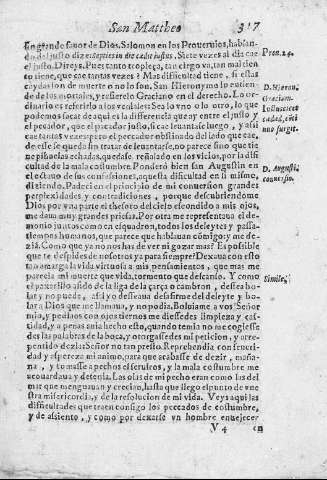 San Mattheo 317
en grande fauor de Dios. Salomon en los Prouerbios, hablan-
do del justo dize: Septies in die cadit iustus. Siete vezes al dia cae
el justo. Direys. Pues tanto tropieça, tan ciego va, tan mal tien
to tiene, que cae tantas vezes? Mas dificultad tiene, si estas
caydas son de muerte o no lo son. San Hieronymo lo entien-
de de los mortales, y refierelo Graciano en el derecho. Lo or-
dinario es referirlo a los veniales: Sea lo vno o lo otro, lo que
podemos sacar de aqui es la differencia que ay entre el justo y
el pecador, que el pecador justo, si cae leuantase luego, y assi
cae tantas vezes: pero el pecador obstinado del lado que cae,
de esse se queda sin tratar de leuantarse, no parece sino que tie
ne piguelas echadas, quedase reñalado en los vicios, por la dif
ficultad de la mala costumbre. Ponderò bien san Augustin en
el octauo de sus confessiones, aquesta dificultad en si mismo,
diziendo. Padeci en el principio de mi conuersion grandes
perplexidades y contradiciones, porque descubriendome
Dios por vna parte el thesoro del cielo escondido a mis ojos,
me daua muy grandes priesas. Por otra me representaua el de-
monio juntos como en esquadron, todos los deleytes y passa-
tiempos humanos, que parece que hablauan cõmigo: y me de-
zia. Como que ya no nos has de ver ni gozar mas? Es possible
que te despides de nosotros ya para siempre? Dexaua con esto
tan amarga la vida virtuosa a mis pensamientos, que mas me
parecia mi muerte que vida, tormento que descanso. Y como
el paxarillo asido de la liga de la çarça o cambron, dessea bo-
lar y no puede, assi yo desseaua desasirme del deleyte y bo-
lar a Dios que me llamaua, y no podia. Boluiame a vos Señor
mio, y pediaos con ojos tiernos me diessedes limpieza y cas-
tidad, y a penas auia hecho esto, quando temia no me cogiesse
des las palabras de la boca, y otorgassedes mi peticion, y arre-
pentido dezia: Señor no tan presto. Reprehendia con feroci-
dad y aspereza mi animo, para que acabasse de dezir, mañana
na, y tumasse a pechos el seruiros, y la mala costumbre me
acouardaua y detenia. Las olas de mi pecho eran como las del
mar que menguauan y crecian, hasta que llego el punto de vue
stra misericordia, y de la resolucion de mi vida. Veys aqui las
difficultades que traen consigo los peccados de costumbre,
y de assiento, y como por dexarse vn hombre enuejecer
V 4 en
Prou. 24.
D. Hieron.
Gracian.
D. Augusti.
Simile.